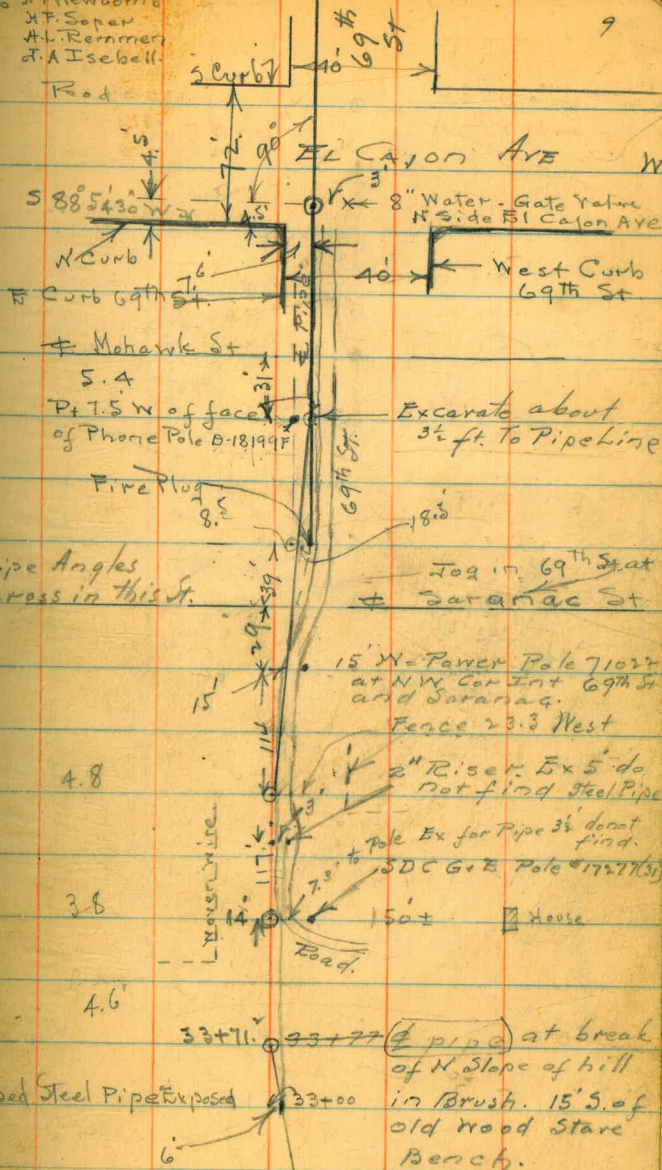 9
H.F. Soper
H.L. Remmen
J.A Isebell.
Road
S Curb
40'
69th St
72'
90°
4.5'
EL CAJON AVE W
S 88°54'30" W
4.5'
8" Water - Gate Valve
N Side El Cajon Ave
N Curb
7.6'
40'
West Curb
69th St.
E Curb 69th St.
℄ Pipe
℄ Mohawk St
5.4
31'
Pt 7.5 W of face
of Phone Pole B-18199F
Excavate about
3½ ft. To PipeLine
69th St.
Fire Plug
8.5
18.5
39'
ipe Angles
cross in this St.
Jog in 69th St. at
℄ Saranac St
29'
15' W = Power Pole 71022
at N W Cor Int 69th St
and Saranac.
15'
114
Fence 23.3 West
4.8
2" Riser. Ex 5' do
not find Steel Pipe
3
Pole Ex for Pipe 3½' do not
find.
117'
Woven Wire
7.3' to
SDC G+E Pole #17277(31)
3.8
14'
150'±
House
Road.
4.6'
33+71.2
33+77
℄ pipe at break
of N Slope of hill
in Brush. 15' S. of
old Wood Stave
Bench.
ped Steel Pipe Exposed
33+00
6'